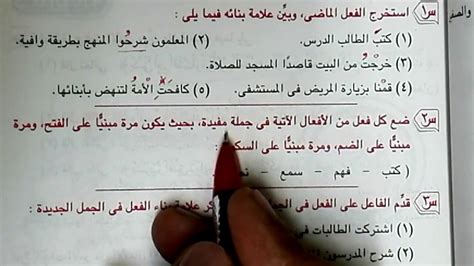 والصف
س١ استخرج الفعل الماضى، وبيِّن علامة بنائه فيما يلى:
(١) كتبَ الطالب الدرس. (٢) المعلمون شرحُوا المنهج بطريقة وافية.
(٣) خرجْتُ من البيت قاصدًا المسجد للصلاة.
(٤) قمْنا بزيارة المريض فى المستشفى. (٥) كافحَتْ الأمةُ لتنهض بأبنائها.
س٢ ضع كل فعل من الأفعال الآتية فى جملة مفيدة، بحيث يكون مرة مبنيًّا على الفتح، ومرة
مبنيًّا على الضم، ومرة مبنيًّا على السك
( كتب – فهم – سمع –
س٣ قدِّم الفاعل على الفعل فى الجمل ... علامة بناء الفعل فى الجمل الجديدة:
(١) اشتركت الطالبات فى
(٢) شرح المدرسون